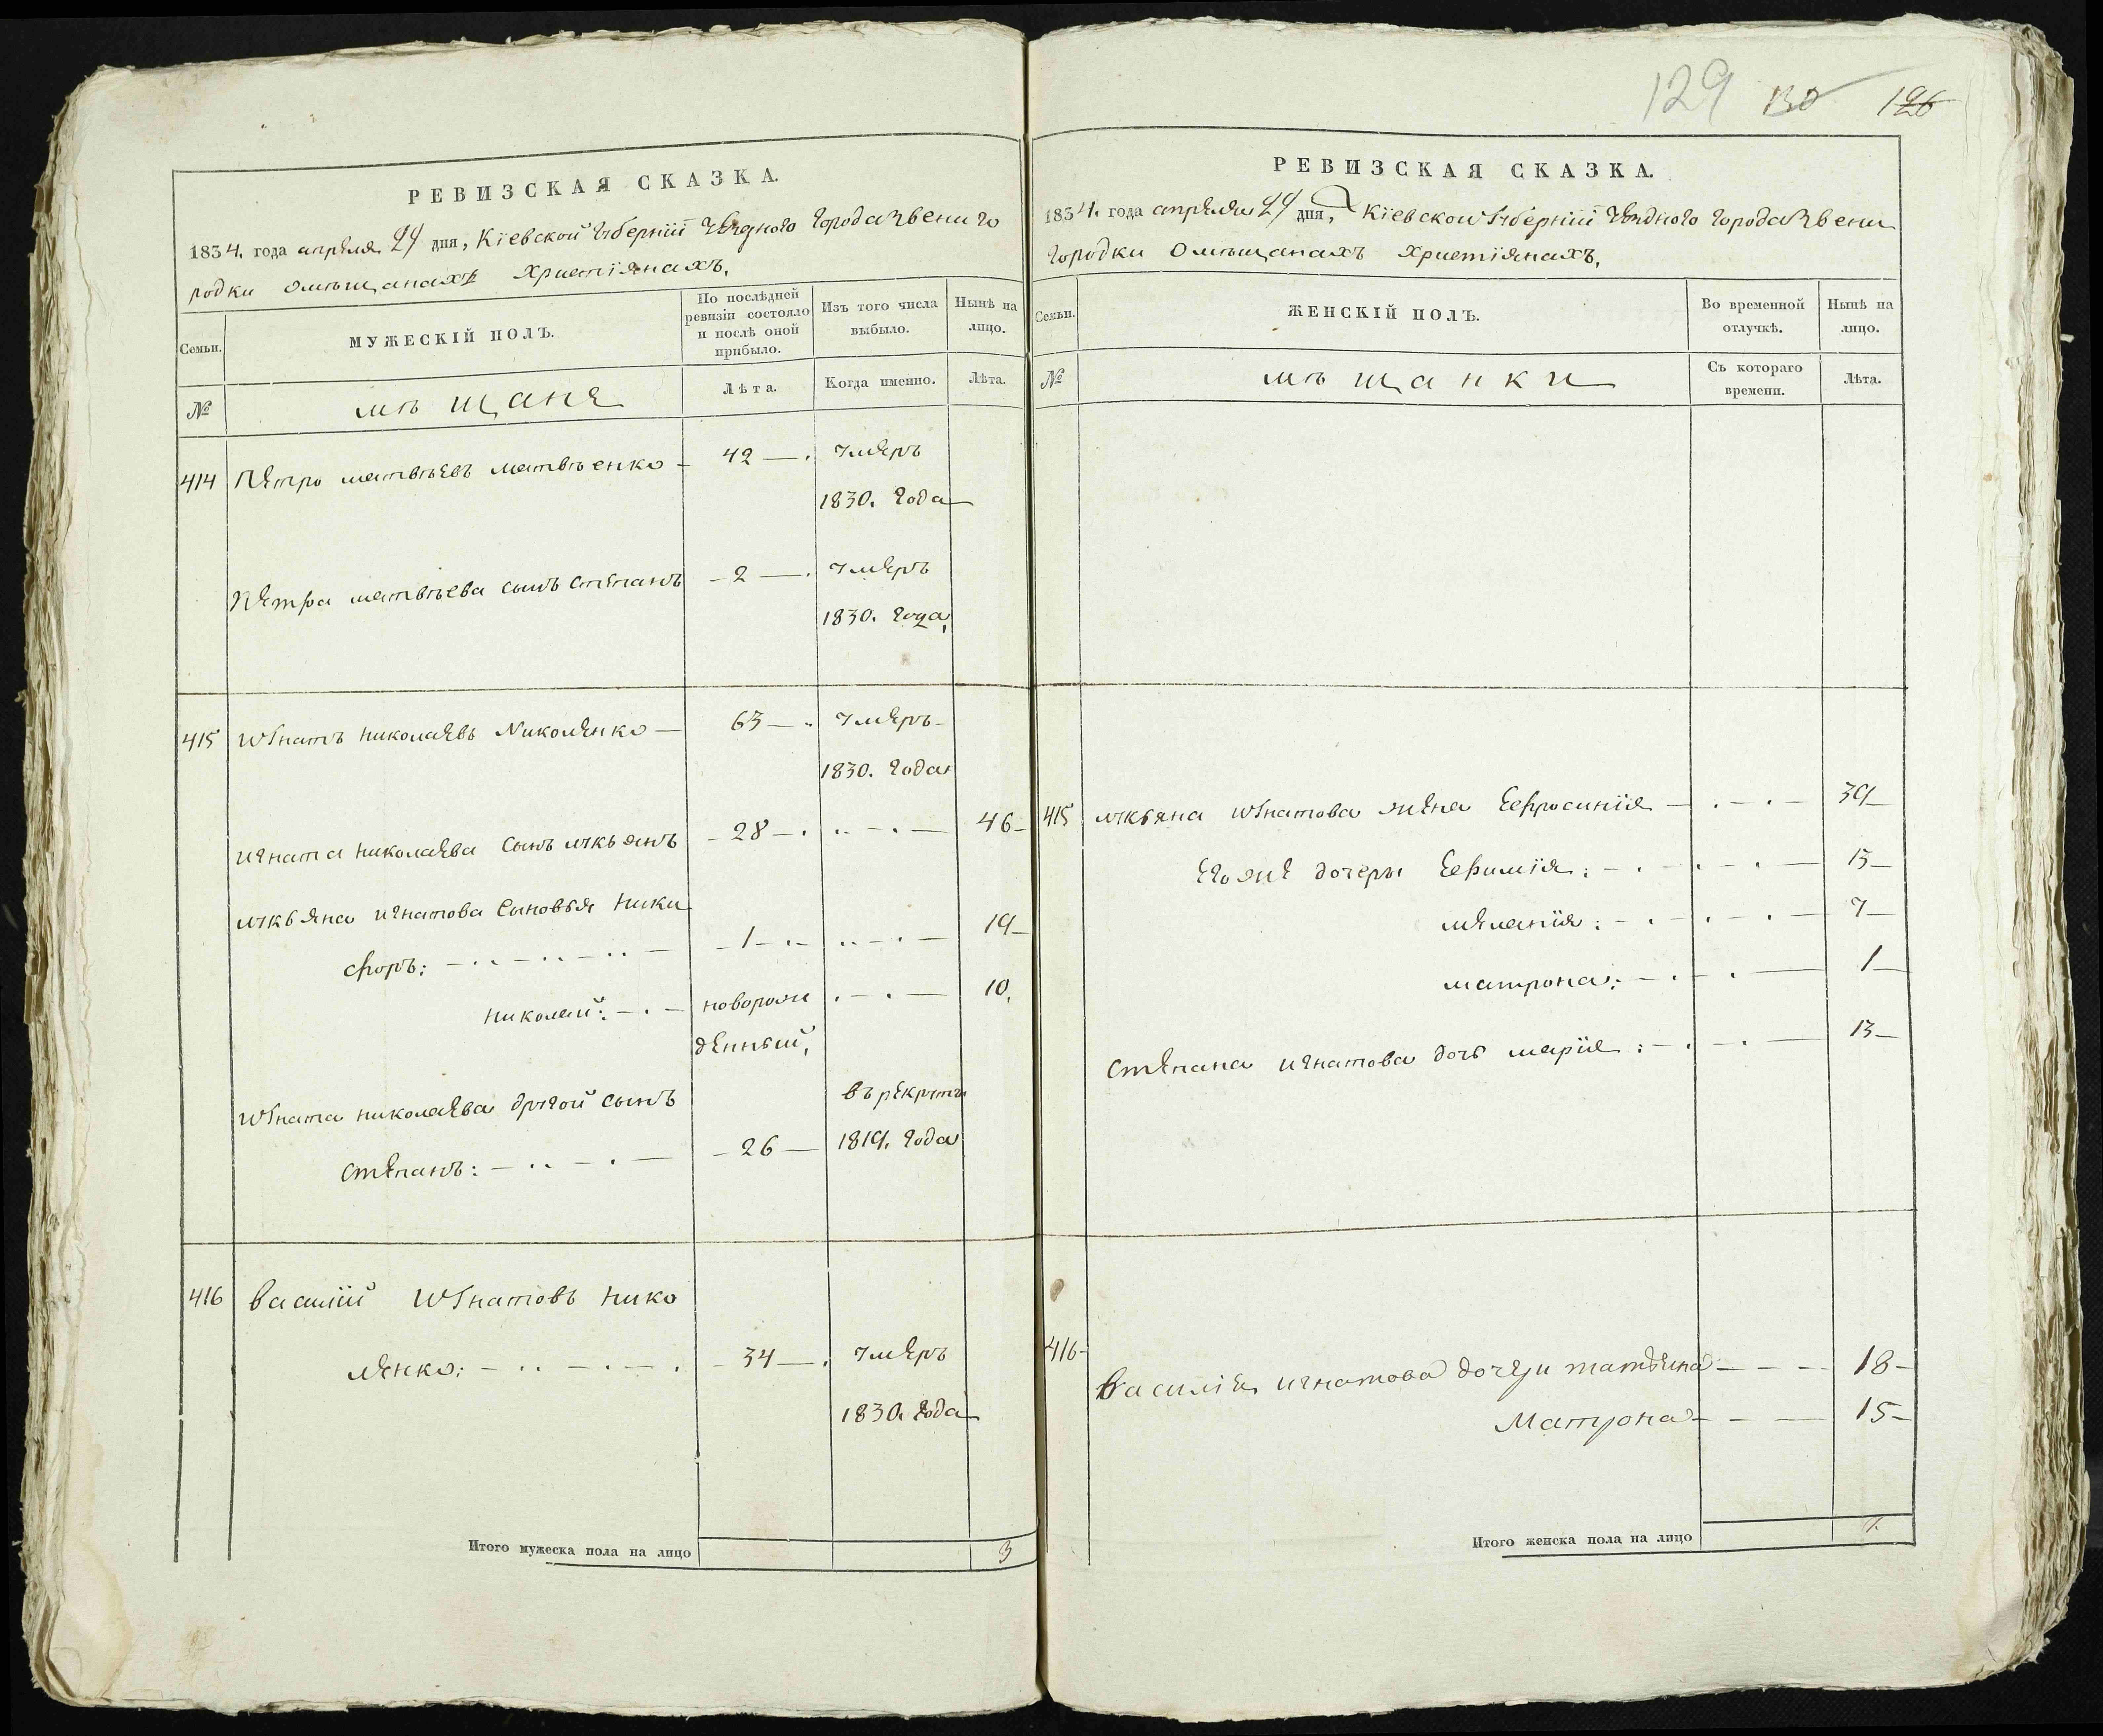 129 130 126
РЕВИЗСКАЯ СКАЗКА.
1834. года апреля 24 дня, Кіевской Губерніи Уезднаго Города Звениго
родки О мѣщанахъ Христіянахъ.
Семьи.
МУЖЕСКІЙ ПОЛЪ.
По послѣдней
ревизіи состояло
и послѣ оной
прибыло.
Изъ того числа
выбыло.
Нынѣ на
лицо.
№
мѣщане
Лѣта.
Когда именно.
Лѣта.
414 Петро матвѣевъ матвѣенко — 42 — умеръ
1830. Года
Петра матвѣева сынъ степанъ — 2 — умеръ
1830. Года,
415 Игнатъ николаевъ Николенко — 63 — умеръ
1830. Года
игната николаева сынъ лукьянъ — 28 — 46
лукьяна игнатова сыновья ники
форъ: — 1 — 19
николай: — новорож 10.
денный,
Игната николаева другой сынъ въ рекруты
степанъ: — 26 — 1819. Года
416 василій Игнатовъ нико
ленко: — 34 — умеръ
1830. Года
Итого мужеска пола на лицо 3
РЕВИЗСКАЯ СКАЗКА.
1834. года апреля 24 дня, Кіевской Губерніи Уезднаго Города Звени
городки О мѣщанахъ Христіянахъ.
Семьи.
ЖЕНСКІЙ ПОЛЪ.
Во временной
отлучкѣ.
Нынѣ на
лицо.
№
мѣщанки
Съ котораго
времени.
Лѣта.
415 лукьяна Игнатова жена Евфросинія — 39
Его же дочеры Евфимія: — 13
меланія: — 7
матрона: — 1
степана игнатова дочь марія: — 13
416 Василія игнатова дочери татьяна — 18
Матрона — 15
Итого женска пола на лицо